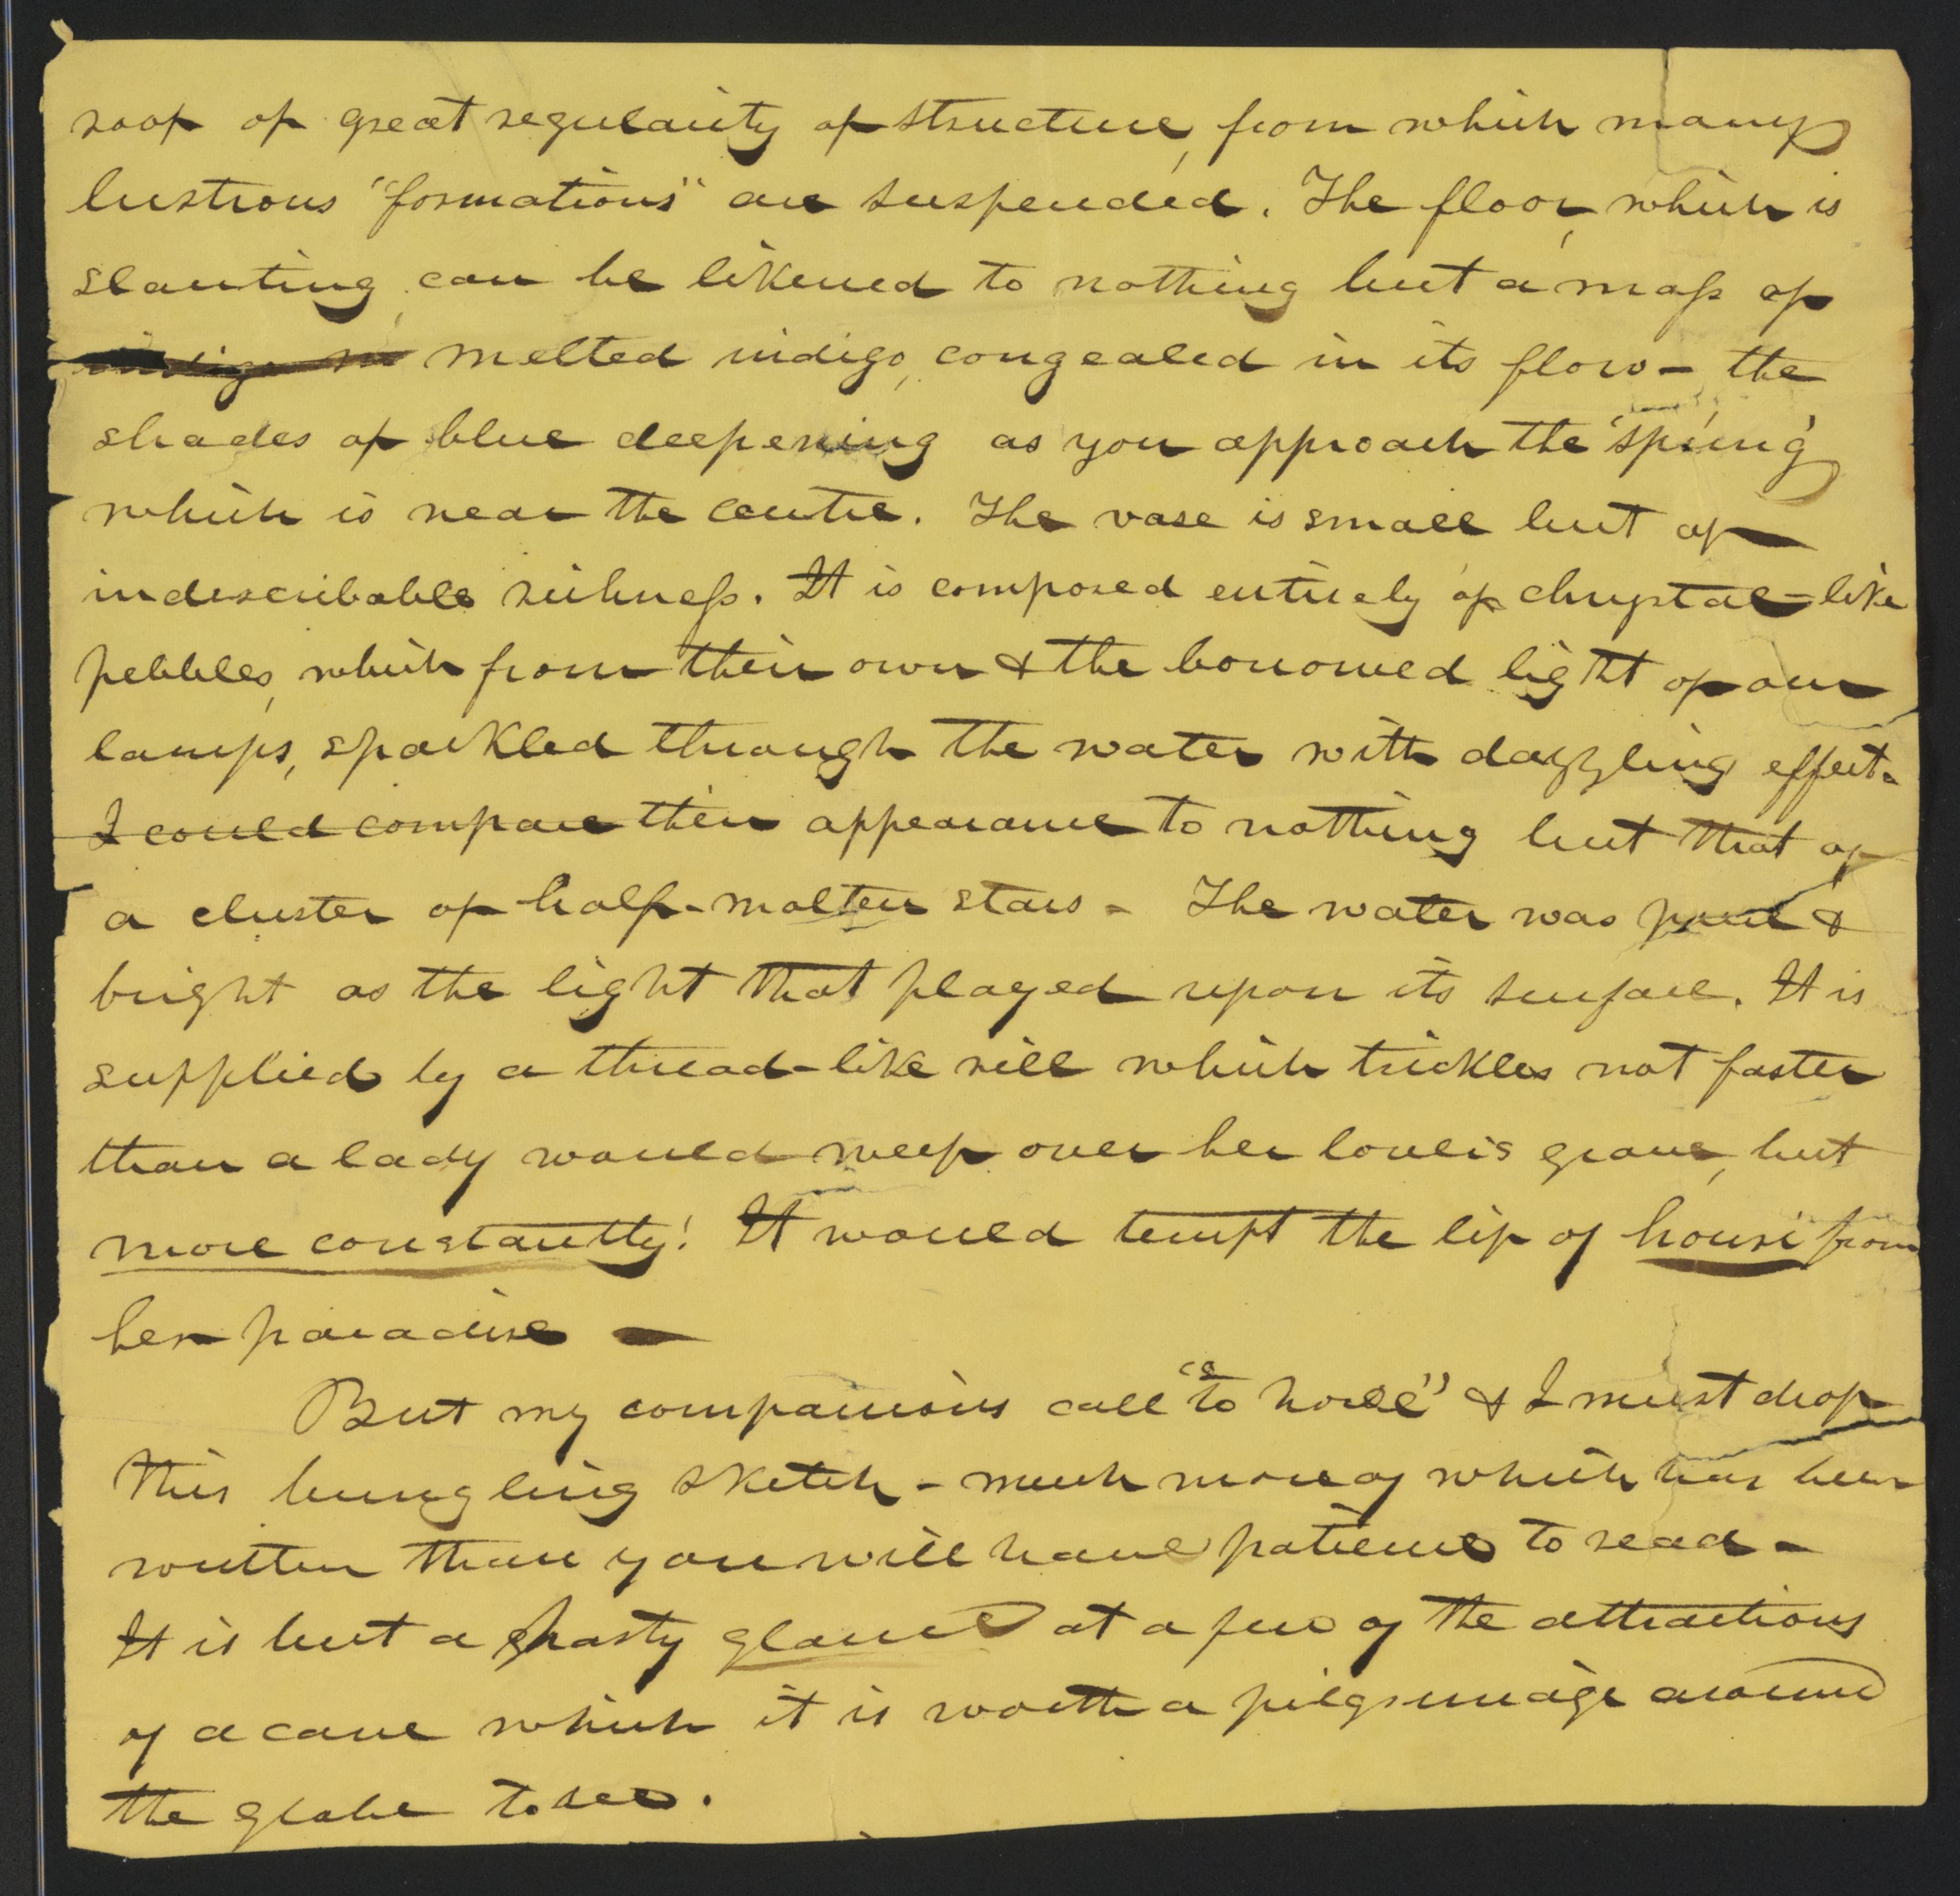 roof of great regularity of structure, from which many
lustrous "formations" are suspended. The floor, which is
slanting, can be likened to nothing but a mass of
melted indigo, congealed in its flow - the
shades of blue deepening as you approach the 'spring'
which is near the centre. The vase is small but of
indescribable richness. It is composed entirely of chrystal-like
pebbles, which from their own & the borrowed light of our
lamps, sparkled through the water with dazzling effect.
I could compare their appearance to nothing but that of
a cluster of half-molten stars - The water was pure &
bright as the light that played upon its surface. It is
supplied by a thread-like rill which trickles not faster
than a lady would weep over her lover's grave, but
more constantly! It would tempt the lip of houri from
her paradise -
But my companions call "to horse" & I must drop
this bungling sketch - much more of which has been
written than you will have patience to read -
It is but a hasty glance at a few of the attractions
of a cave which it is worth a pilgrimage around
the globe to see.